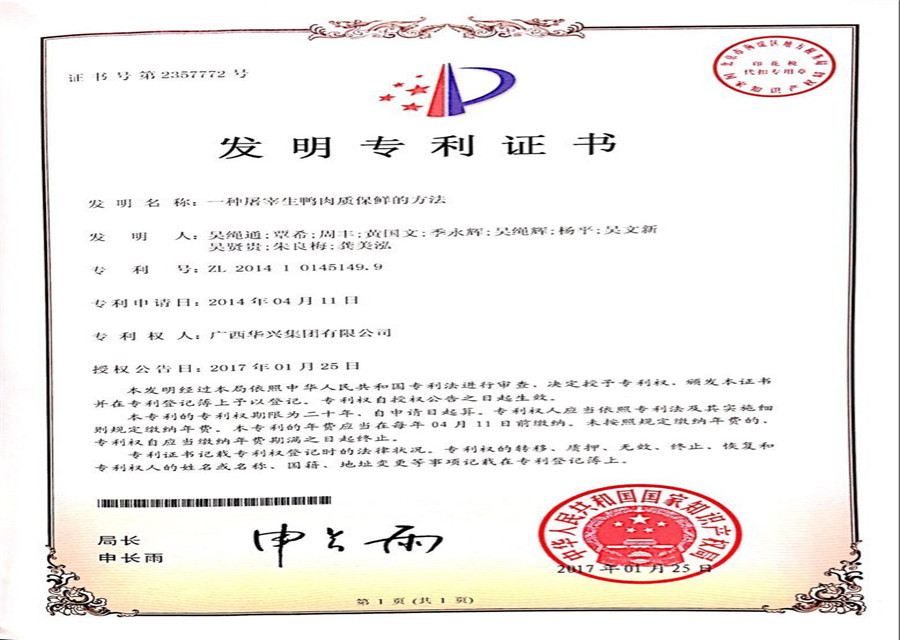 证书号第2357772号
印花税
代扣专用章
发明专利证书
发 明 名 称：一种屠宰生鸭肉质保鲜的方法
发 明 人：吴绳通;覃希;周丰;黄国文;季永辉;吴绳辉;杨平;吴文新
吴贤贵;朱良梅;龚美泓
专 利 号：ZL 2014 1 0145149.9
专利申请日：2014年04月11日
专 利 权 人：广西华兴集团有限公司
授权公告日：2017年01月25日
本发明经过本局依照中华人民共和国专利法进行审查，决定授予专利权，颁发本证书
并在专利登记簿上予以登记。专利权自授权公告之日起生效。
本专利的专利权期限为二十年，自申请日起算。专利权人应当依照专利法及其实施细
则规定缴纳年费。本专利的年费应当在每年04月11日前缴纳。未按照规定缴纳年费的，
专利权自应当缴纳年费期满之日起终止。
专利证书记载专利权登记时的法律状况。专利权的转移、质押、无效、终止、恢复和
专利权人的姓名或名称、国籍、地址变更等事项记载在专利登记簿上。
局长
申长雨
申长雨
中华人民共和国国家知识产权局
2017年01月25日
第1页(共1页)